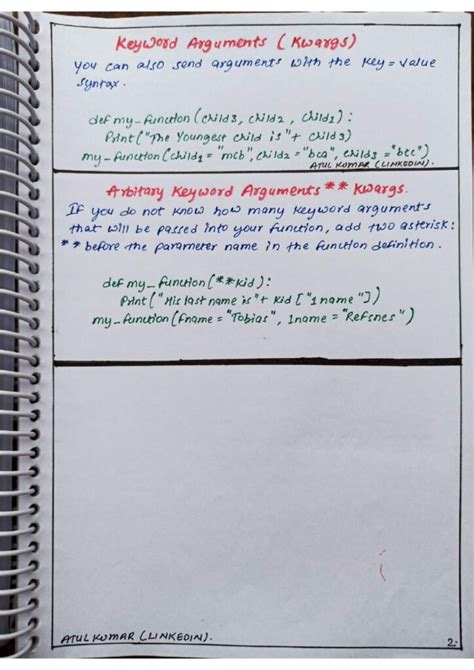 Keyword Arguments (Kwargs)
You can also send arguments with the Key = Value
Syntax.
def my_function (child3, child2, child1) :
Print ("The Youngest child is" + child3)
my_function (child1 = "mcb", child2 = "bca", child3 = "btc")
ATUL KUMAR (LINKEDIN).
Arbitary Keyword Arguments ** Kwargs.
If you do not know how many keyword arguments
that will be passed into your function, add two asterisk:
** before the parameter name in the function definition.
def my_function (**kid) :
Print ("His last name is" + kid ["lname"])
my_function (fname = "Tobias", lname = "Refsnes")
ATUL KUMAR (LINKEDIN).
2.